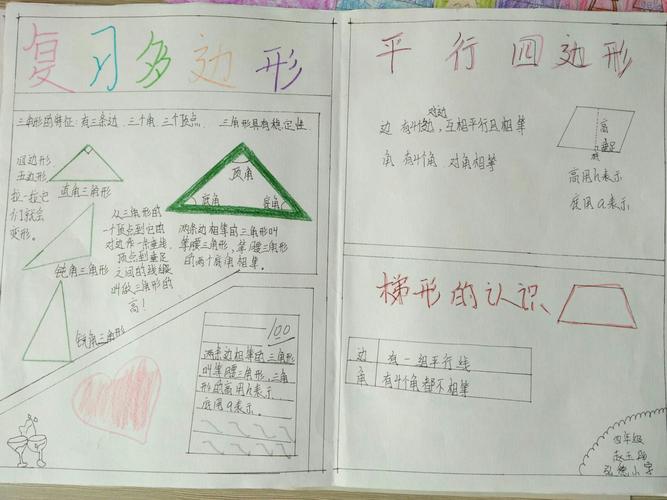 复习多边形
三角形的特征：有三条边、三个角、三个顶点， 三角形具有稳定性
四边形
五边形
拉一拉它
们就会
变形。
直角三角形
钝角三角形
锐角三角形
从三角形的
一个顶点到它的
对边作一条垂线，
顶点到垂足
之间的线段
叫做三角形的
高！
顶角
底角
底角
两条边相等的三角形叫
等腰三角形，等腰三角形
的两个底角相等。
100
两条边相等的三角形
叫等腰三角形，三角
形的高用h表示
底用a表示。
平行四边形
对边
边 有4条边，互相平行且相等
角 有4个角，对角相等
高
垂足
底
高用h表示
底用a表示
梯形的认识
边 有一组平行线
角 有4个角都不相等
四年级
弘德小学